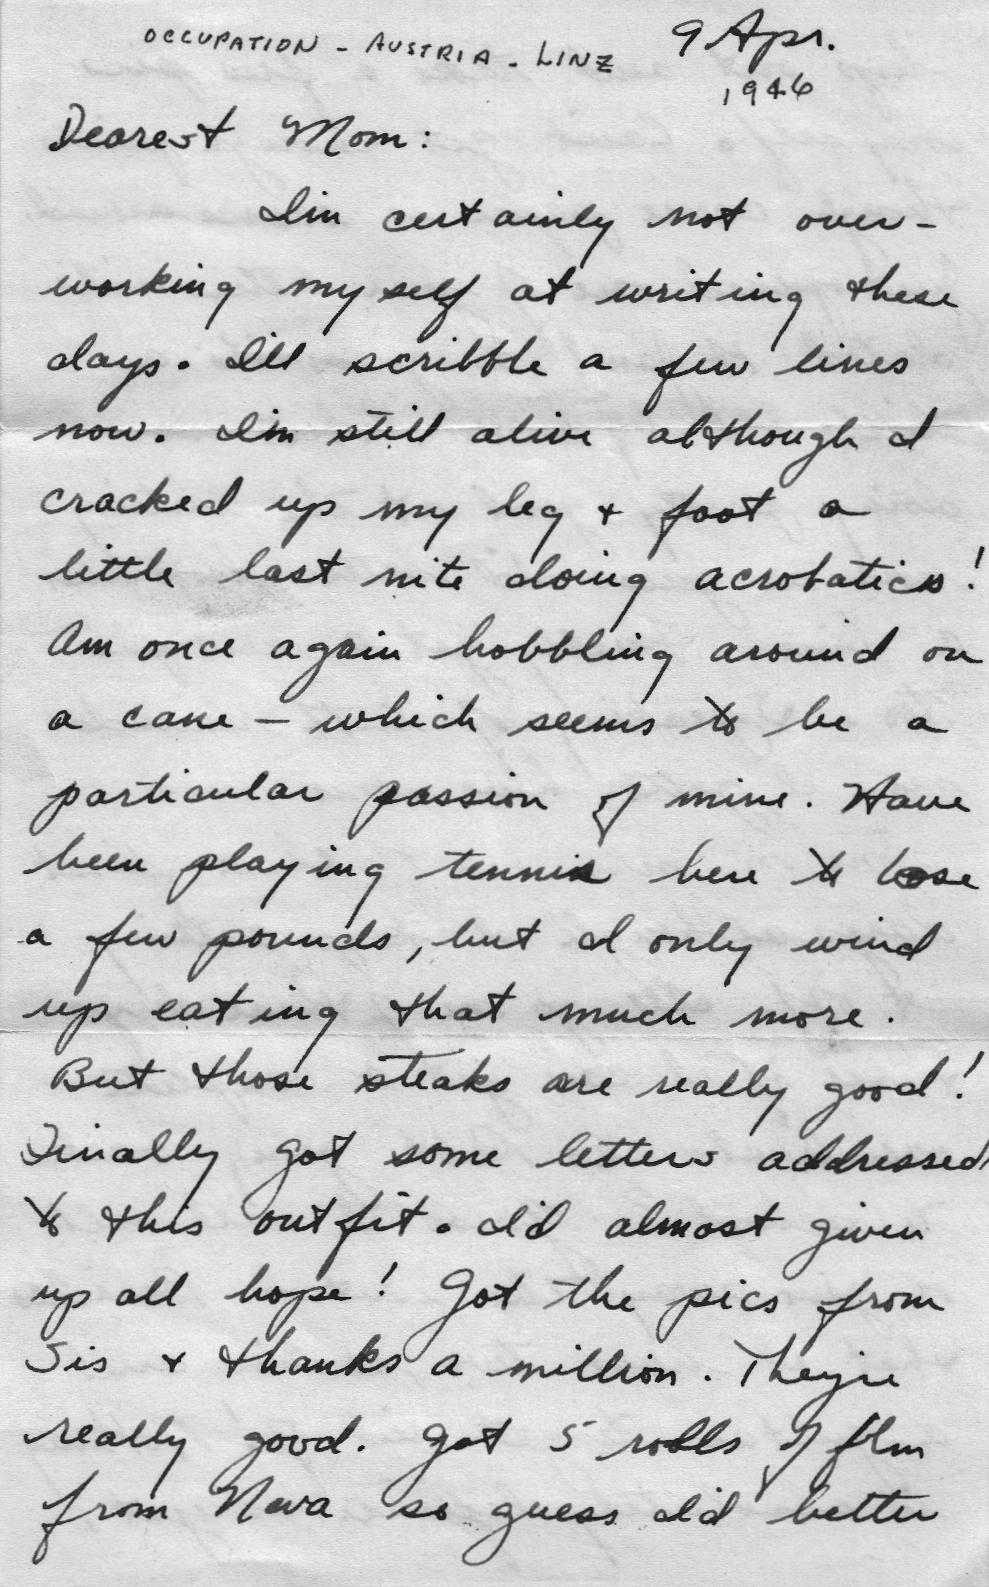 OCCUPATION - AUSTRIA - LINZ
9 Apr.
1946
Dearest Mom:
I'm certainly not over-
working myself at writing these
days. I'll scribble a few lines
now. I'm still alive although I
cracked up my leg & foot a
little last nite doing acrobatics!
Am once again hobbling around on
a cane - which seems to be a
particular passion of mine. Have
been playing tennis here to lose
a few pounds, but I only wind
up eating that much more.
But those steaks are really good!
Finally got some letters addressed
to this outfit. I'd almost given
up all hope! Got the pics from
Sis & thanks a million. They're
really good. Got 5 rolls of film
from Neva so guess I'd better